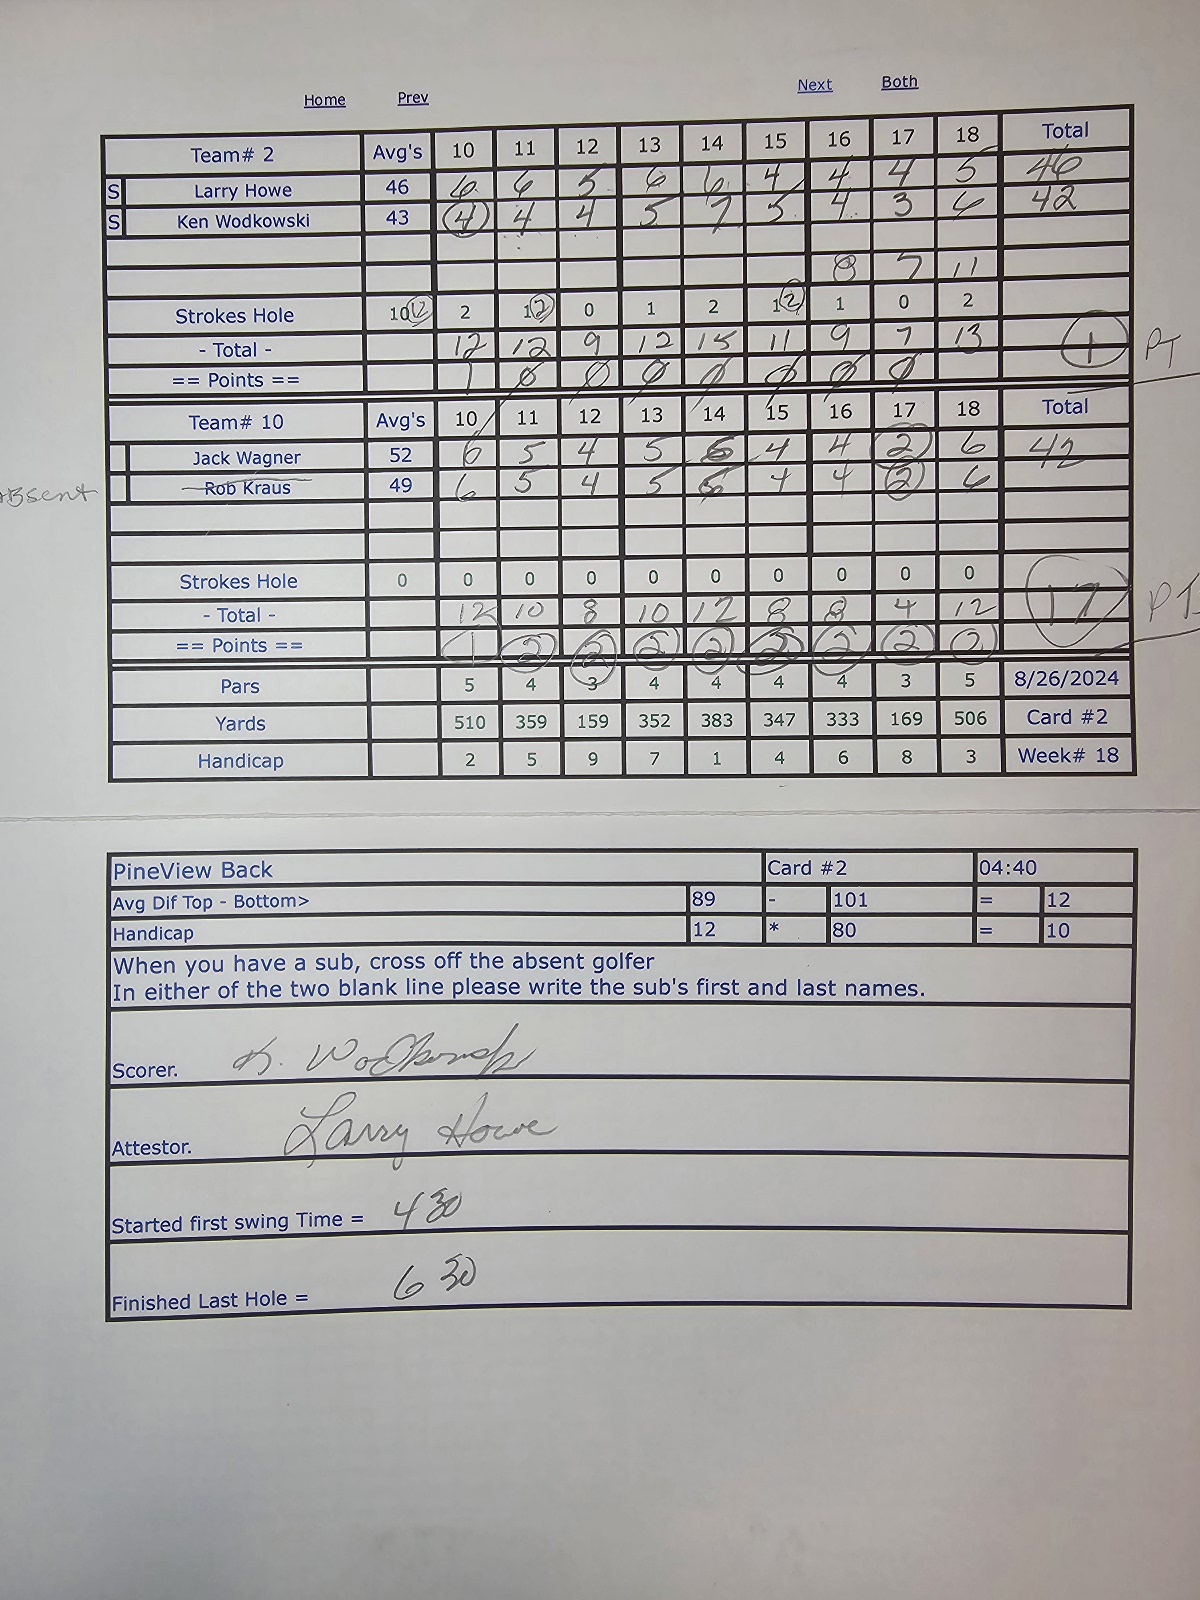 Home Prev Next Both
Team# 2 Avg's 10 11 12 13 14 15 16 17 18 Total
S Larry Howe 46 6 6 5 6 6 4 4 4 5 46
S Ken Wodkowski 43 4 4 4 5 7 5 4 3 6 42
8 7 11
Strokes Hole 10 12 2 1 2 0 1 2 1 2 1 0 2
- Total - 12 12 9 12 15 11 9 7 13 1 PT
== Points == 1 0 0 0 0 0 0 0
Team# 10 Avg's 10 11 12 13 14 15 16 17 18 Total
Jack Wagner 52 6 5 4 5 6 4 4 2 6 42
Absent Rob Kraus 49 6 5 4 5 6 4 4 2 6
Strokes Hole 0 0 0 0 0 0 0 0 0 0
- Total - 12 10 8 10 12 8 8 4 12 17
== Points == 1 2 2 2 2 2 2 2 2
Pars 5 4 3 4 4 4 4 3 5 8/26/2024
Yards 510 359 159 352 383 347 333 169 506 Card #2
Handicap 2 5 9 7 1 4 6 8 3 Week# 18
PineView Back Card #2 04:40
Avg Dif Top - Bottom> 89 - 101 = 12
Handicap 12 * 80 = 10
When you have a sub, cross off the absent golfer
In either of the two blank line please write the sub's first and last names.
Scorer. K. Wodkowski
Attestor. Larry Howe
Started first swing Time = 4 30
Finished Last Hole = 6 30